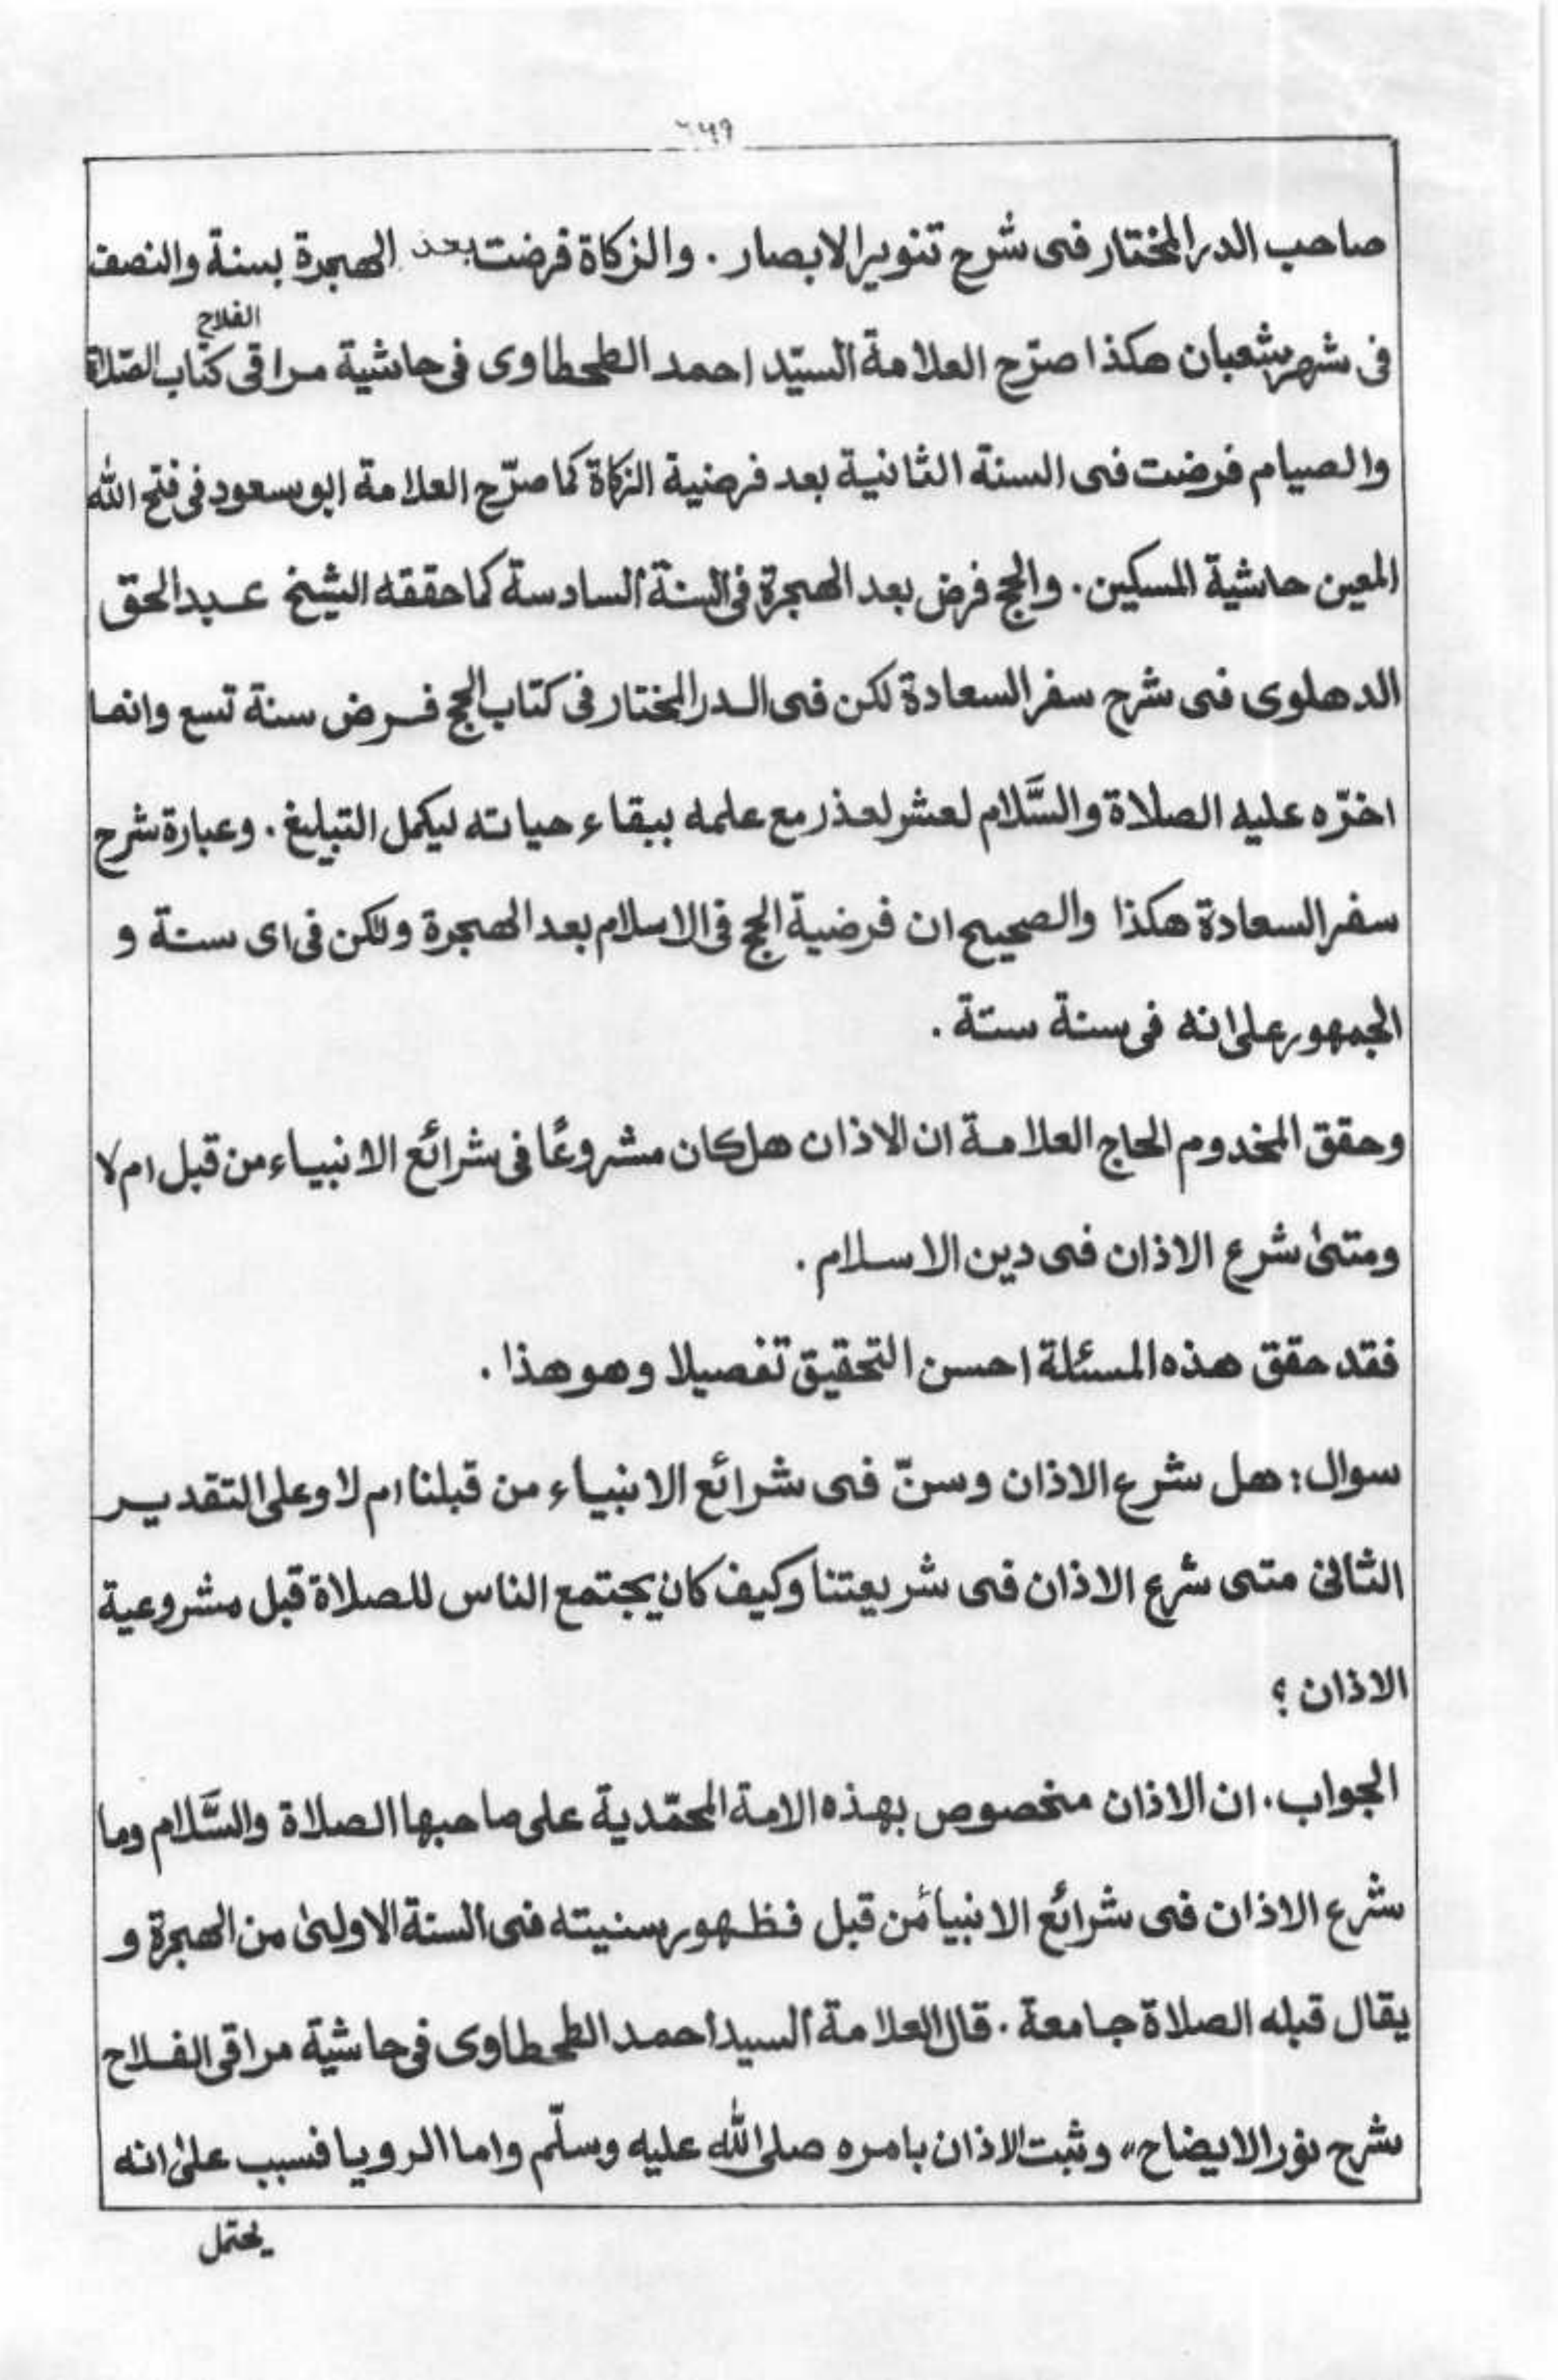 صاحب الدر المختار فى شرح تنوير الابصار . والزكاة فرضت بعد الهجرة بسنة والنصف
الفلاح
فى شهر شعبان هكذا صرّح العلامة السيّد احمد الطحطاوى فى حاشية مراقى كتاب الصّلاة
والصيام فرضت فى السنة الثانية بعد فرضية الزكاة كما صرّح العلامة ابو سعود فى فتح الله
المعين حاشية المسكين . والحج فرض بعد الهجرة فى السنة السادسة كما حققه الشيخ عبد الحق
الدهلوى فى شرح سفر السعادة لكن فى الدر المختار فى كتاب الحج فرض سنة تسع وانما
اخّره عليه الصلاة والسَّلام لعشر لعذر مع علمه ببقاء حياته ليكمل التبليغ . وعبارة شرح
سفر السعادة هكذا والصحيح ان فرضية الحج فى الاسلام بعد الهجرة ولكن فى اى سنة و
الجمهور على انه فى سنة ستة .
وحقق المخدوم الحاج العلامة ان الاذان هل كان مشروعًا فى شرائع الانبياء من قبل ام لا
ومتىٰ شرع الاذان فى دين الاسلام .
فقد حقق هذه المسئلة احسن التحقيق تفصيلا وهو هذا .
سوال : هل شرع الاذان وسنّ فى شرائع الانبياء من قبلنا ام لا وعلى التقدير
الثانى متى شرع الاذان فى شريعتنا وكيف كان يجتمع الناس للصلاة قبل مشروعية
الاذان ؟
الجواب . ان الاذان مخصوص بهذه الامة المحمّدية على صاحبها الصلاة والسَّلام وما
شرع الاذان فى شرائع الانبياء من قبل فظهور سنيته فى السنة الاولىٰ من الهجرة و
يقال قبله الصلاة جامعة . قال العلامة السيد احمد الطحطاوى فى حاشية مراقى الفلاح
شرح نور الايضاح ،، وثبت الاذان بامره صلى الله عليه وسلّم واما الرويا فسبب علىٰ انه
يحتمل